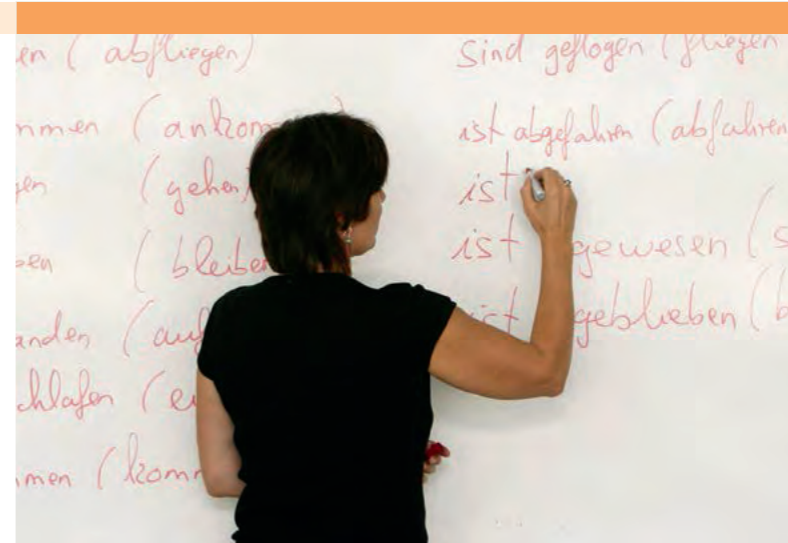 en (abfliegen)
mmen (ankom
gen (gehen)
ben (bleiben
anden (auf
chlafen (ei
mmen (komm
Sind geflogen (fliegen
ist abgefahren (abfahren
ist
ist gewesen (s
ist geblieben (b